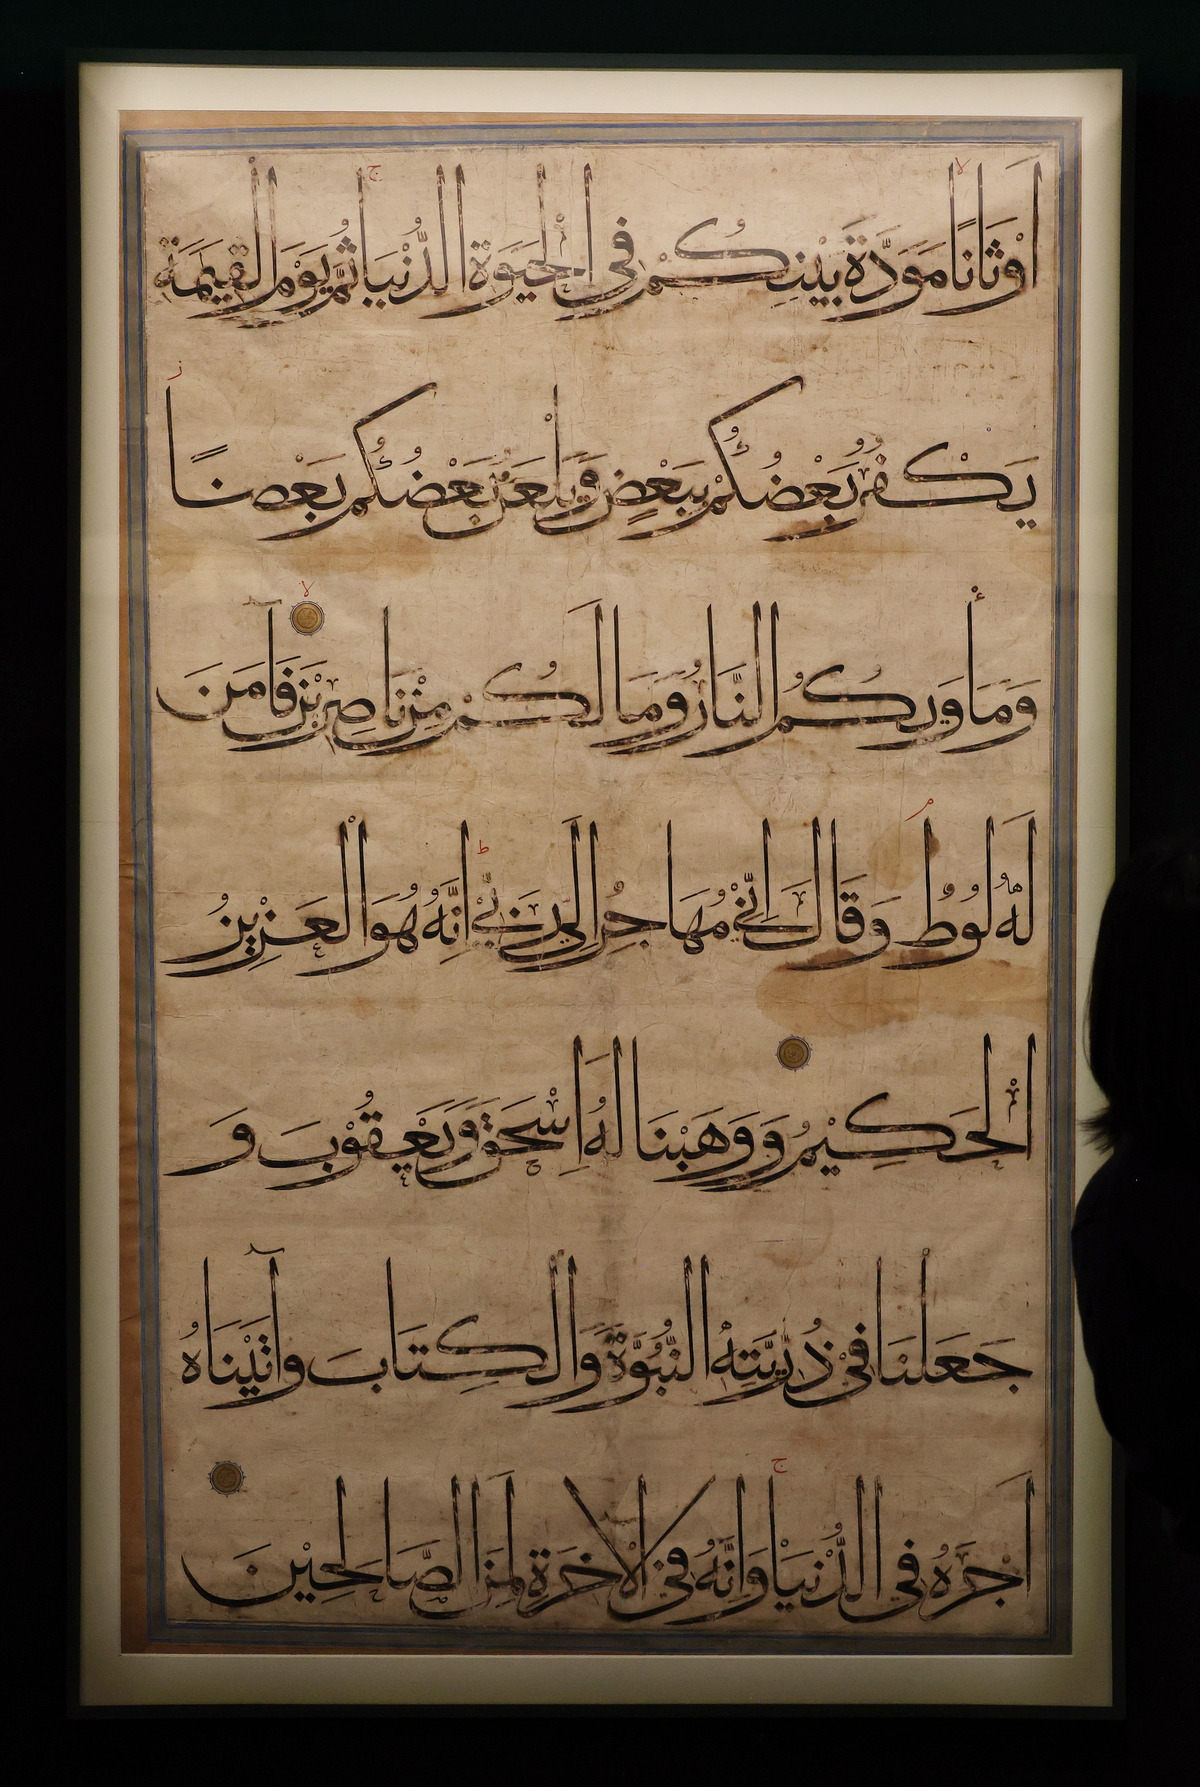 اَوْثَانًا مَوَدَّةَ بَيْنِكُمْ فِي الْحَيٰوةِ الدُّنْيَا ثُمَّ يَوْمَ الْقِيٰمَةِ
يَكْفُرُ بَعْضُكُمْ بِبَعْضٍ وَيَلْعَنُ بَعْضُكُمْ بَعْضًا
وَمَأْوٰيكُمُ النَّارُ وَمَا لَكُمْ مِنْ نَاصِرِيْنَ فَآمَنَ
لَهُ لُوْطٌ وَقَالَ اِنِّيْ مُهَاجِرٌ اِلٰى رَبِّيْ اِنَّهُ هُوَ الْعَزِيْزُ
الْحَكِيْمُ وَوَهَبْنَا لَهُ اِسْحٰقَ وَيَعْقُوْبَ وَ
جَعَلْنَا فِيْ ذُرِّيَّتِهِ النُّبُوَّةَ وَالْكِتَابَ وَآتَيْنَاهُ
اَجْرَهُ فِي الدُّنْيَا وَاِنَّهُ فِي الْاٰخِرَةِ لَمِنَ الصَّالِحِيْنَ